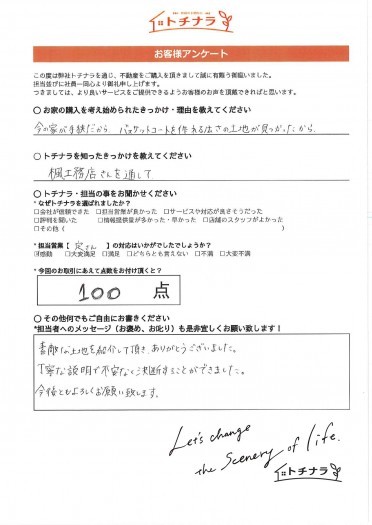 トチナラ
お客様アンケート
この度は弊社トチナラを通じ、不動産をご購入を頂きまして誠に有難う御座いました。
担当並びに社員一同心より御礼申し上げます。
つきましては、より良いサービスをご提供できるようお客様のお声を頂戴できればと思います。
○ お家の購入を考え始められたきっかけ・理由を教えてください
今の家が手狭だから。バスケットコートを作れる広さの土地が見つかったから。
○ トチナラを知ったきっかけを教えてください
楓工務店さんを通して
○ トチナラ・担当の事をお聞かせください
*なぜトチナラを選ばれましたか?
□会社が信頼できた □担当営業が良かった □サービスや対応が良さそうだった
□評判を聞いた □情報提供量が多かった・早かった □店舗のスタッフがよかった
□その他（ ）
*担当営業【 定さん 】の対応はいかがでしたでしょうか?
☑感動 □大変満足 □満足 □どちらとも言えない □不満 □大変不満
*今回のお取引にあえて点数をお付け頂くと?
100 点
○ その他何でもご自由にお書きください
*担当者へのメッセージ（お褒め、お叱り）も是非宜しくお願い致します!
素敵な土地を紹介して頂き、ありがとうございました。
丁寧な説明で不安なく決断することができました。
今後ともよろしくお願い致します。
Let's change
the scenery of life.
トチナラ